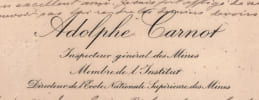 Adolphe Carnot
Inspecteur général des Mines
Membre de l'Institut
Directeur de l'Ecole Nationale Supérieure des Mines